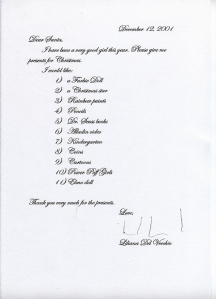 December 12, 2001
Dear Santa,
I have been a very good girl this year. Please give me
presents for Christmas.
I would like:
1) a Barbie Doll
2) a Christmas star
3) Rainbow paints
4) Pencils
5) Dr. Seuss books
6) Alladin video
7) Kindergarten
8) Coins
9) Cartoons
10) Power Puff Girls
11) Elmo doll
Thank you very much for the presents.
Love,
Liliana Del Vecchio